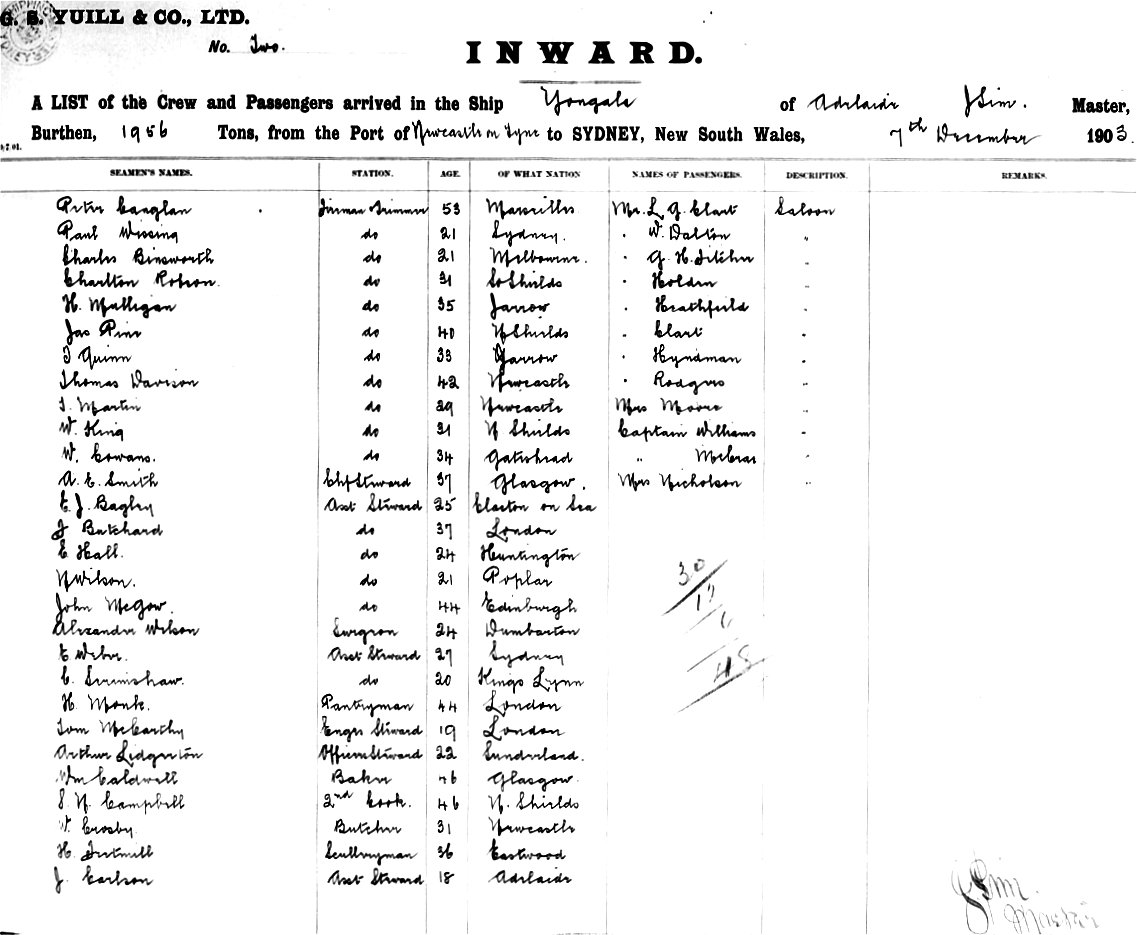 G. S. YUILL & CO., LTD.
No. Two.
INWARD.
A LIST of the Crew and Passengers arrived in the Ship Yongala of Adelaide J Sim. Master,
Burthen, 1956 Tons, from the Port of Newcastle on Tyne to SYDNEY, New South Wales, 7th December 1903.
SEAMEN'S NAMES. STATION. AGE. OF WHAT NATION NAMES OF PASSENGERS. DESCRIPTION. REMARKS.
Peter 53 Marseilles Mr. L. G. Saloon
Paul Wissing do 21 Sydney. " W. Dalton "
Charles Binsworth do 21 Melbourne. " G. H. "
Charlton Robson do 31 So Shields " Holden "
H. Mulligan do 35 Jarrow " Heathfield "
Jas do 40 N Shields "
J Quinn do 33 Jarrow " Hyndman "
Thomas Davison do 42 Newcastle " Rodgers "
T. Martin do 29 Newcastle Mrs Moore "
W. King do 31 N Shields Captain Williams "
W. Cowans. do 34 Gateshead " McCrae "
A. E. Smith Chf Steward 37 Glasgow. Mrs Nicholson "
E. J. Bagley Asst Steward 25 Clacton on Sea
J Butchard do 37 London
E Hall. do 24 Huntington
N Wilson. do 21 Poplar
John McGow. do 44 Edinburgh
Alexander Wilson Surgeon 24 Dumbarton
E. Weber. Asst Steward 27 Sydney
C. Scrimshaw. do 20 Kings Lynn
H. Monk. Pantryman 44 London
Tom McCarthy Engrs Steward 19 London
Arthur Lidgerton Officers Steward 22 Sunderland.
Wm Caldwell Baker 46 Glasgow.
S. N. Campbell 2nd Cook. 46 N. Shields
W. Crosby. Butcher 31 Newcastle
H. Sculleryman 36 Eastwood
J. Carlson Asst Steward 18 Adelaide
30
12
6
48
J Sim.
Master